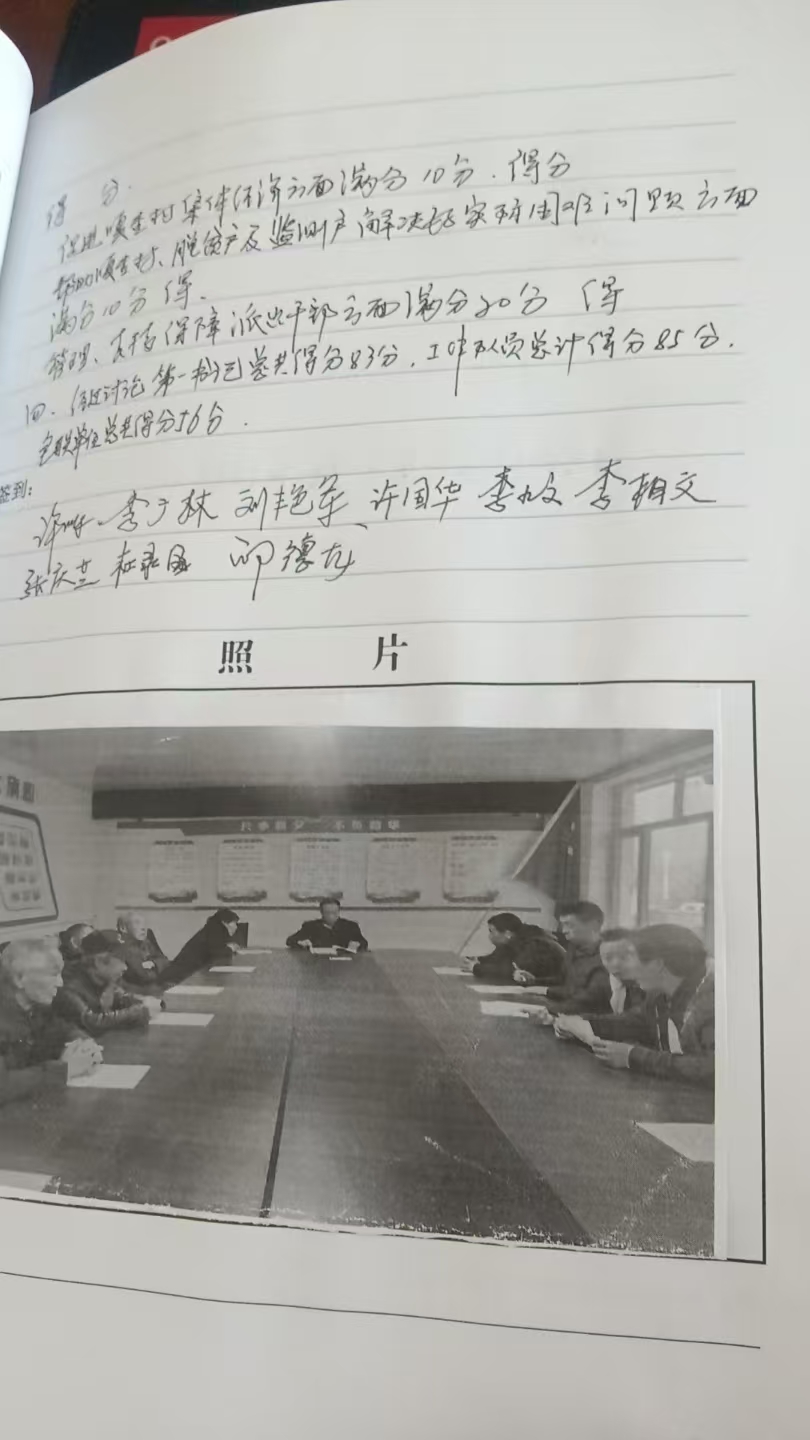 得 分.
促进嘎查村集体经济方面满分10分.得分
帮助嘎查村、脱贫户及监测户解决好实际困难问题方面
满分10分 得、
管理、支持保障派出干部方面满分20分 得
四、经过讨论第一书记总共得分83分,工作队员总计得分85分.
包联单位总共得分56分.
签到:
李广林 刘艳军、许国华 李 李相文
张庆 邱德龙
照 片